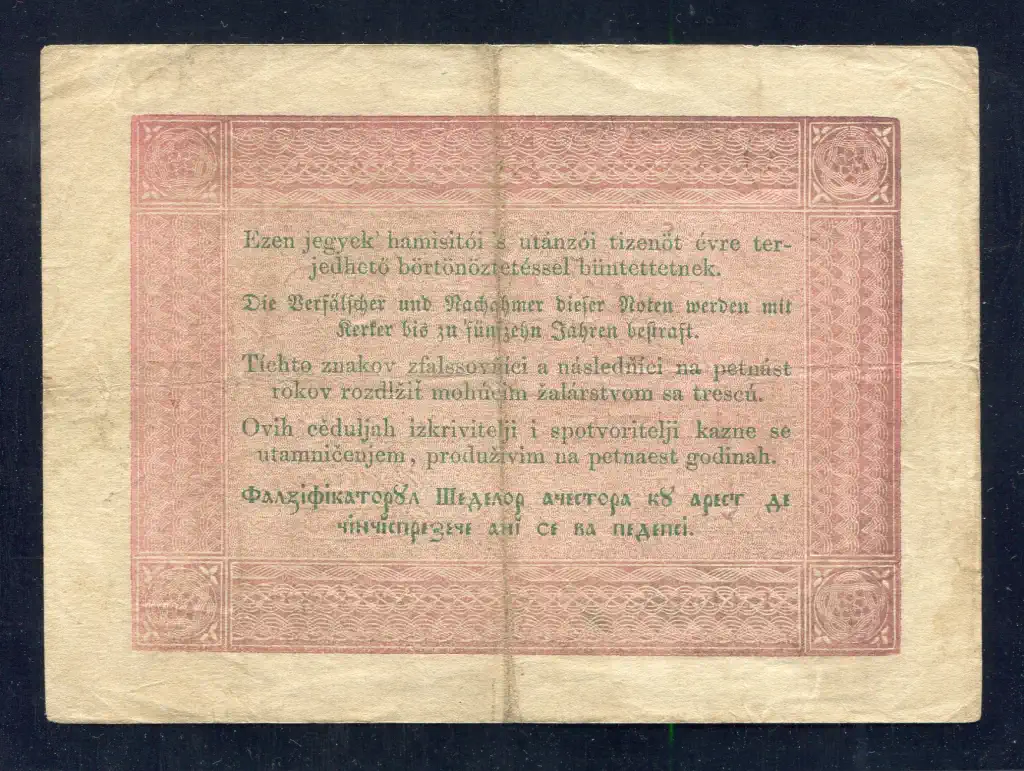 Ezen jegyek' hamisitói 's utánzói tizenöt évre ter-
jedhető börtönöztetéssel büntettetnek.
Die Verfälscher und Nachahmer dieser Noten werden mit
Kerker bis zu fünfzehn Jahren bestraft.
Tichto znakov zfalssovňíci a následňíci na petnást
rokov rozdlžiť mohúcim žalárstvom sa trescú.
Ovih cěduljah izkrivitelji i spotvoritelji kazne se
utamničenjem, produživim na petnaest godinah.
Фалзіфікаторꙋл Шеделор ачестора кꙋ арест де
чінчіспрезече ані се ва педепсі.